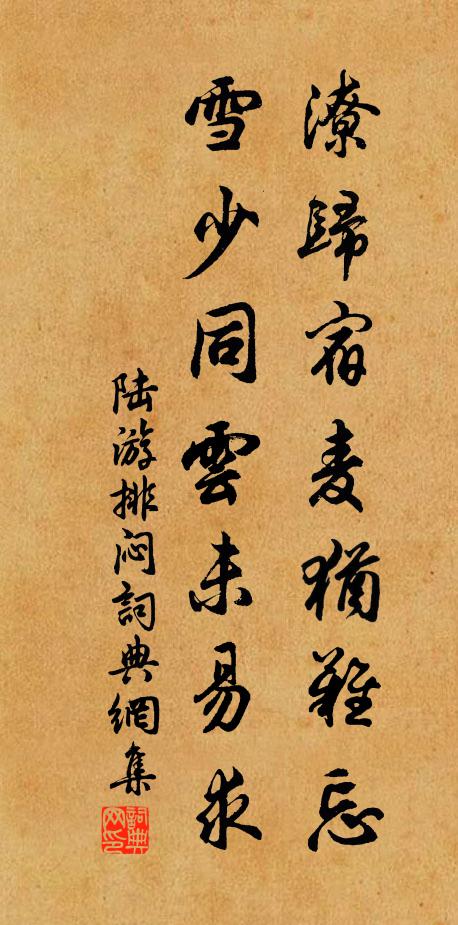 潦歸宿麦猶難忘
雪少同雲未易求
陆游排闷詞典網集
詞典网印